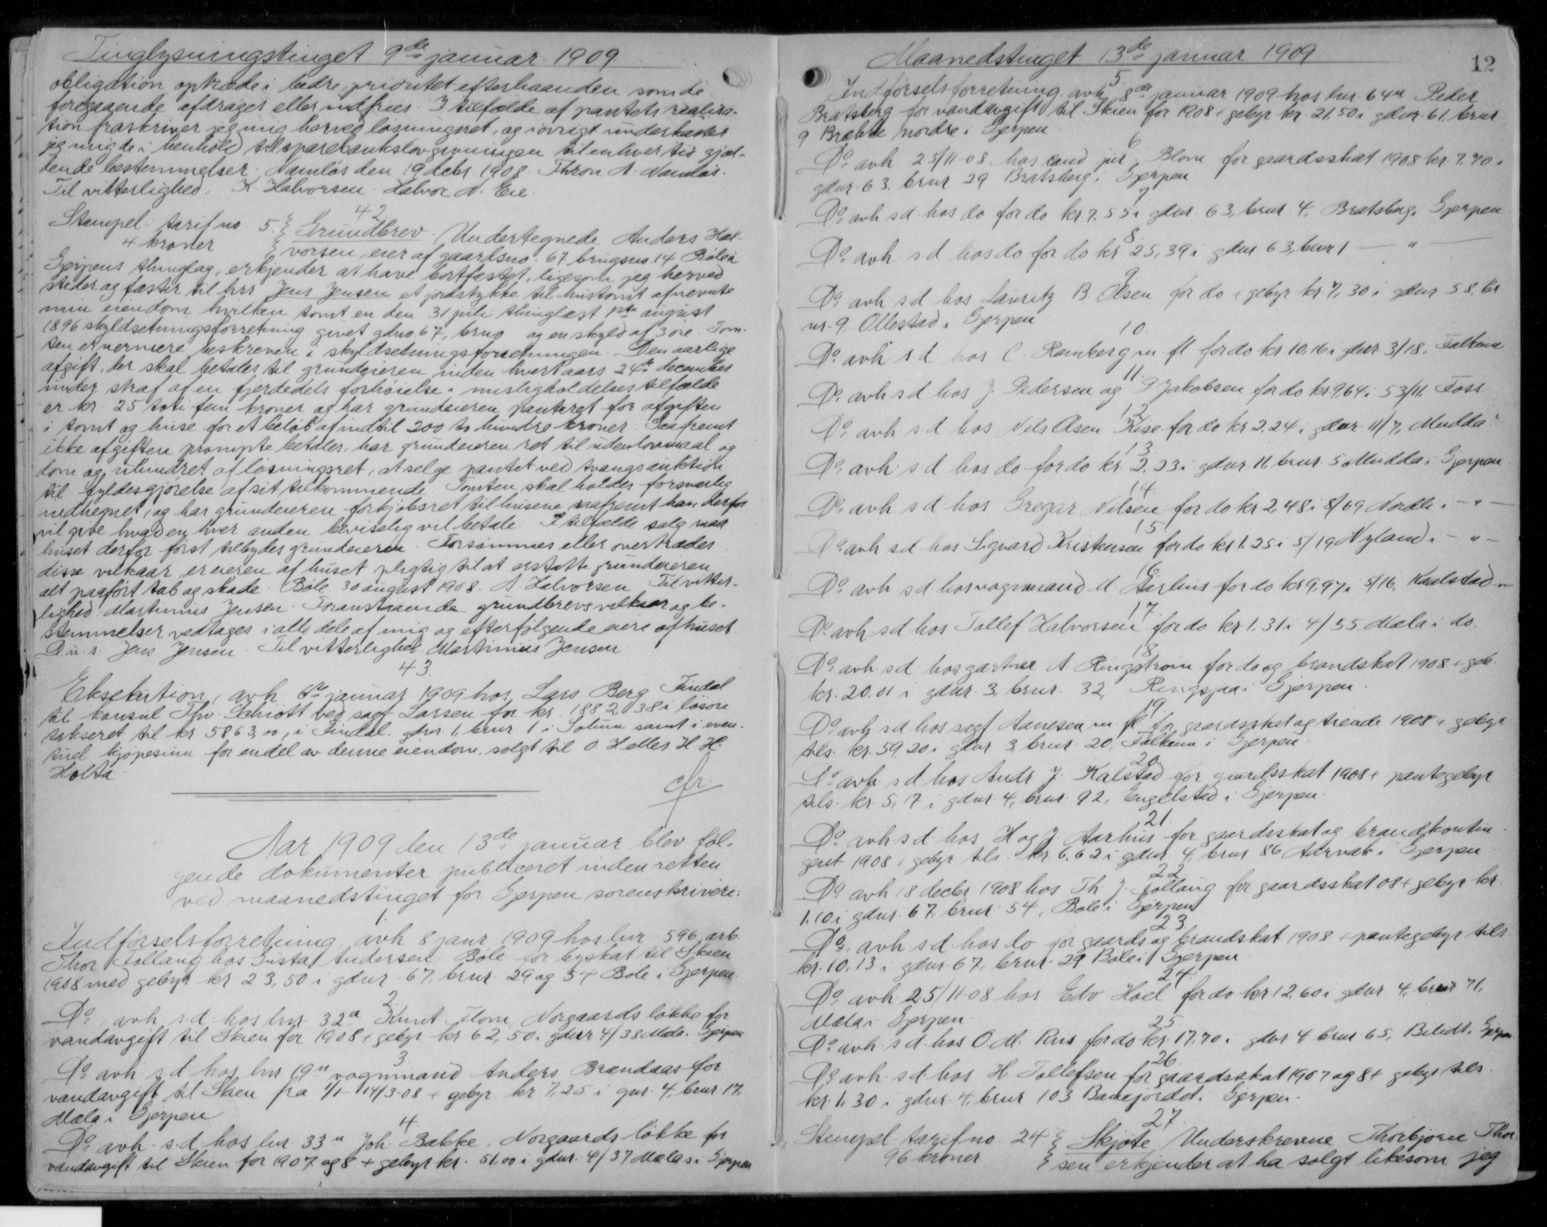 Tinglysningstinget 9de januar 1909
obligation optræde i bedre prioritet efterhaanden som de
foregaaende afdrages eller indfries. I tilfælde af pantets realisa-
tion fraskriver jeg mig herved løsningsret, og iøvrigt underkaster
jeg mig de i henhold til sparebankslovgivningen til enhver tid gjæl-
dende bestemmelser. Namløs den 19 decbr 1908. Thron A. Namløs.
Til vitterlighed: K. Halvorsen. Halvor N. Eie.
42
Stempel tarif no 5. Grundbrev. Undertegnede Anders Hal-
4 kroner vorsen, eier af gaardsno. 67, brugsno 14 Bøle i
Gjerpens thinglag, erkjender at have bortfæstet, ligesom jeg herved
steder og fæster til hrr Jens Jensen et jordstykke til hustomt af nævnte
min eiendom hvilken tomt en den 31 juli thinglæst 1ste august
1896 skyldsetningsforretning givet gdno 67, brno og en skyld af 3 øre. Tom-
ten er nærmere beskreven i skyldsetningsforretningen. Den aarlige
afgift, der skal betales til grundeieren inden hvert aars 24de december
under straf af en fjerdedels forhøielse i misligholdelsestilfælde
er kr. 25 toti fem kroner og har grundeieren panteret for afgiften
i tomt og huse for et beløb af indtil 200 to hundre kroner. Saafremt
ikke afgiften prompte betales, har grundeieren ret til uden lovmaal og
dom og uhindret af løsningsret, at selge pantet ved tvangsauktion
til fyldesgjørelse af sit tilkommende. Tomten skal holdes forsvarlig
indhegnet, og har grundeieren forkjøbsret til husene saafremt han derfor
vil give hvad en hver anden beviselig vil betale. I tilfælde salg maa
huset derfor først tilbydes grundeieren. Forsømmes eller overtrædes
disse vilkaar er eieren af huset pligtig til at erstatte grundeieren
alt paaført tab og skade. Bøle 30 august 1908. A. Halvorsen. Til vitter-
lighed Martinius Jensen. Foranstaaende grundbrevs vilkaar og be-
stemmelser vedtages i alle dele af mig og efterfølgende eiere af huset
D. u. s. Jens Jensen. Til vitterlighed Martinius Jensen
43.
Eksekution, avh. 8de januar 1909 hos Lars Berg Findal
til konsul Thv. Schiøtt ved sagf. Larsen for kr. 1882,38 i løsøre
takseret til kr 5863,00, i Findal gdnr 1, brnr 1 i Solum samt i even-
tuel kjøpesum for en del av denne eiendom solgt til O. H eller H. H.
Holta.
cfr.
Aar 1909 den 13de januar blev føl-
gende dokumenter publiceret inden retten
ved maanedstinget for Gjerpen sorenskriveri:
1.
Indførselsforretning avh 8 janr 1909 hos lnr. 596, arb.
Thor Follaug hos Gustaf Andersen, Bøle for byskat til Skien
1908 med gebyr kr 23,50 i gdnr. 67. brnr 29 og 54 Bøle i Gjerpen.
2.
Do avh s.d. hos lnr. 32a Knut Flom, Norgaards løkke for
vandavgift til Skien for 1908 + gebyr kr 62,50 i gdnr 4/38 Mæla. Gjerpen
3
Do avh s.d. hos lnr 19a vognmand Anders Brændaas for
vandavgift til Skien fra 1/1-14/3-08 + gebyr kr 7,25 i gnr. 4, brnr 17.
Mæla i Gjerpen
4
Do avh. s.d. hos lnr 33a Joh. Bakke, Norgaards løkke for
vandavgift til Skien for 1907 og 8 + gebyr kr. 51.00 i gdnr. 4/37 Mæla i Gjerpen

Maanedstinget 13de januar 1909
12
5
Indførselsforretning avh. 8de januar 1909 hos lnr. 64a Peder
Bratsberg for vandavgift til Skien for 1908 + gebyr kr 21.50 i gdnr. 61, brnr
9 Brække nordre i Gjerpen.
6
Do avh 25/11-08 hos cand jur. Blom for gaardsskat 1908 kr. 7.70 i
gdnr 63, brnr 29 Bratsberg i Gjerpen
7
Do avh s d hos do for do kr 7.55 i gdnr 63, brnr 4, Bratsberg, Gjerpen
8
Do avh. s d hos do for do kr 25,39 i gdnr 63, brnr 1 — " —
9
Do avh s d hos Lauritz B. Olsen for do + gebyr kr 7,30 i gdnr 58, br
nr. 9 Ollestad i Gjerpen
10
Do avh s d hos C. Ramberg m. fl for do kr 10,16 i gdnr 3/18. Falkum
11
Do avh s d hos J. Pedersen og P. Jakobsen for do kr 9,64 i 53/11. Foss
12
Do avh s d hos Nils Olsen Rise for do kr 2,24 i gdnr 11/7, Mudda
13
Do avh. s d hos do for do kr 2,23 i gdnr 11, brnr 5 Mudda i Gjerpen
14
Do avh s d hos Gregar Nilsen for do kr 2.48 i 8/69 i — " —
15
Do avh s d hos Sigvard Kristensen for do kr 1.25 i 5/19 Nyland i — " —
16
Do avh s d hos vognmand for do kr 9,97 i 5/16, Kaalstad — " —
17
Do avh s d hos Tollef Halvorsen for do kr 1.31 i 4/55 Mæla i do.
18
Do avh s d hos gartner A Ringstrøm for do og brandskat 1908 + geb.
kr. 20.01 i gdnr. 3, brnr. 32, i Gjerpen.
19
Do avh s d hos sagf Aanesen m fl for gaardsskat og tiende 1908 + gebyr
tils. kr 59,20 i gdnr 3, brnr. 20, Falkum i Gjerpen.
20
Do avh s d hos Andr J. Kalstad for gaardsskat 1908 + pantegebyr
tils. kr. 5,17 i gdnr 4, brnr 92, Engelstad i Gjerpen.
21
Do avh s d hos H og J. Aarhus for gaardsskat og brandkontin-
gent 1908 + gebyr tils. kr. 6.62 i gdnr 4, brnr 86 i Gjerpen
22
Do avh 18 decbr 1908 hos Th. J. Follaug for gaardsskat 08 + gebyr kr.
1.10 i gdnr. 67 brnr 54, Bøle i Gjerpen
23
Do. avh s d hos do for gaards og brandskat 1908 + pantegebyr tils
kr. 10,13 i gdnr. 67, brnr. 29 Bøle i Gjerpen
24
Do avh. 25/11 08 hos Edv Hoel for do kr 12,60 i gdnr 4, brnr 71,
Mæla i Gjerpen
25
Do avh. s d hos O. M. Riis for do kr. 17.70 i gdnr 4 brnr 65, Gjerpen
26
Do avh s d hos H Tollefsen for gaardsskat 1907 og 8 + gebyr tils.
kr. 1,30 i gdnr. 4, brnr 103 i Gjerpen.
27.
Stempel tarif no 24 Skjøte. Underskrevne Thorbjørn Thor-
96 kroner sen erkjender at ha solgt likesom jeg